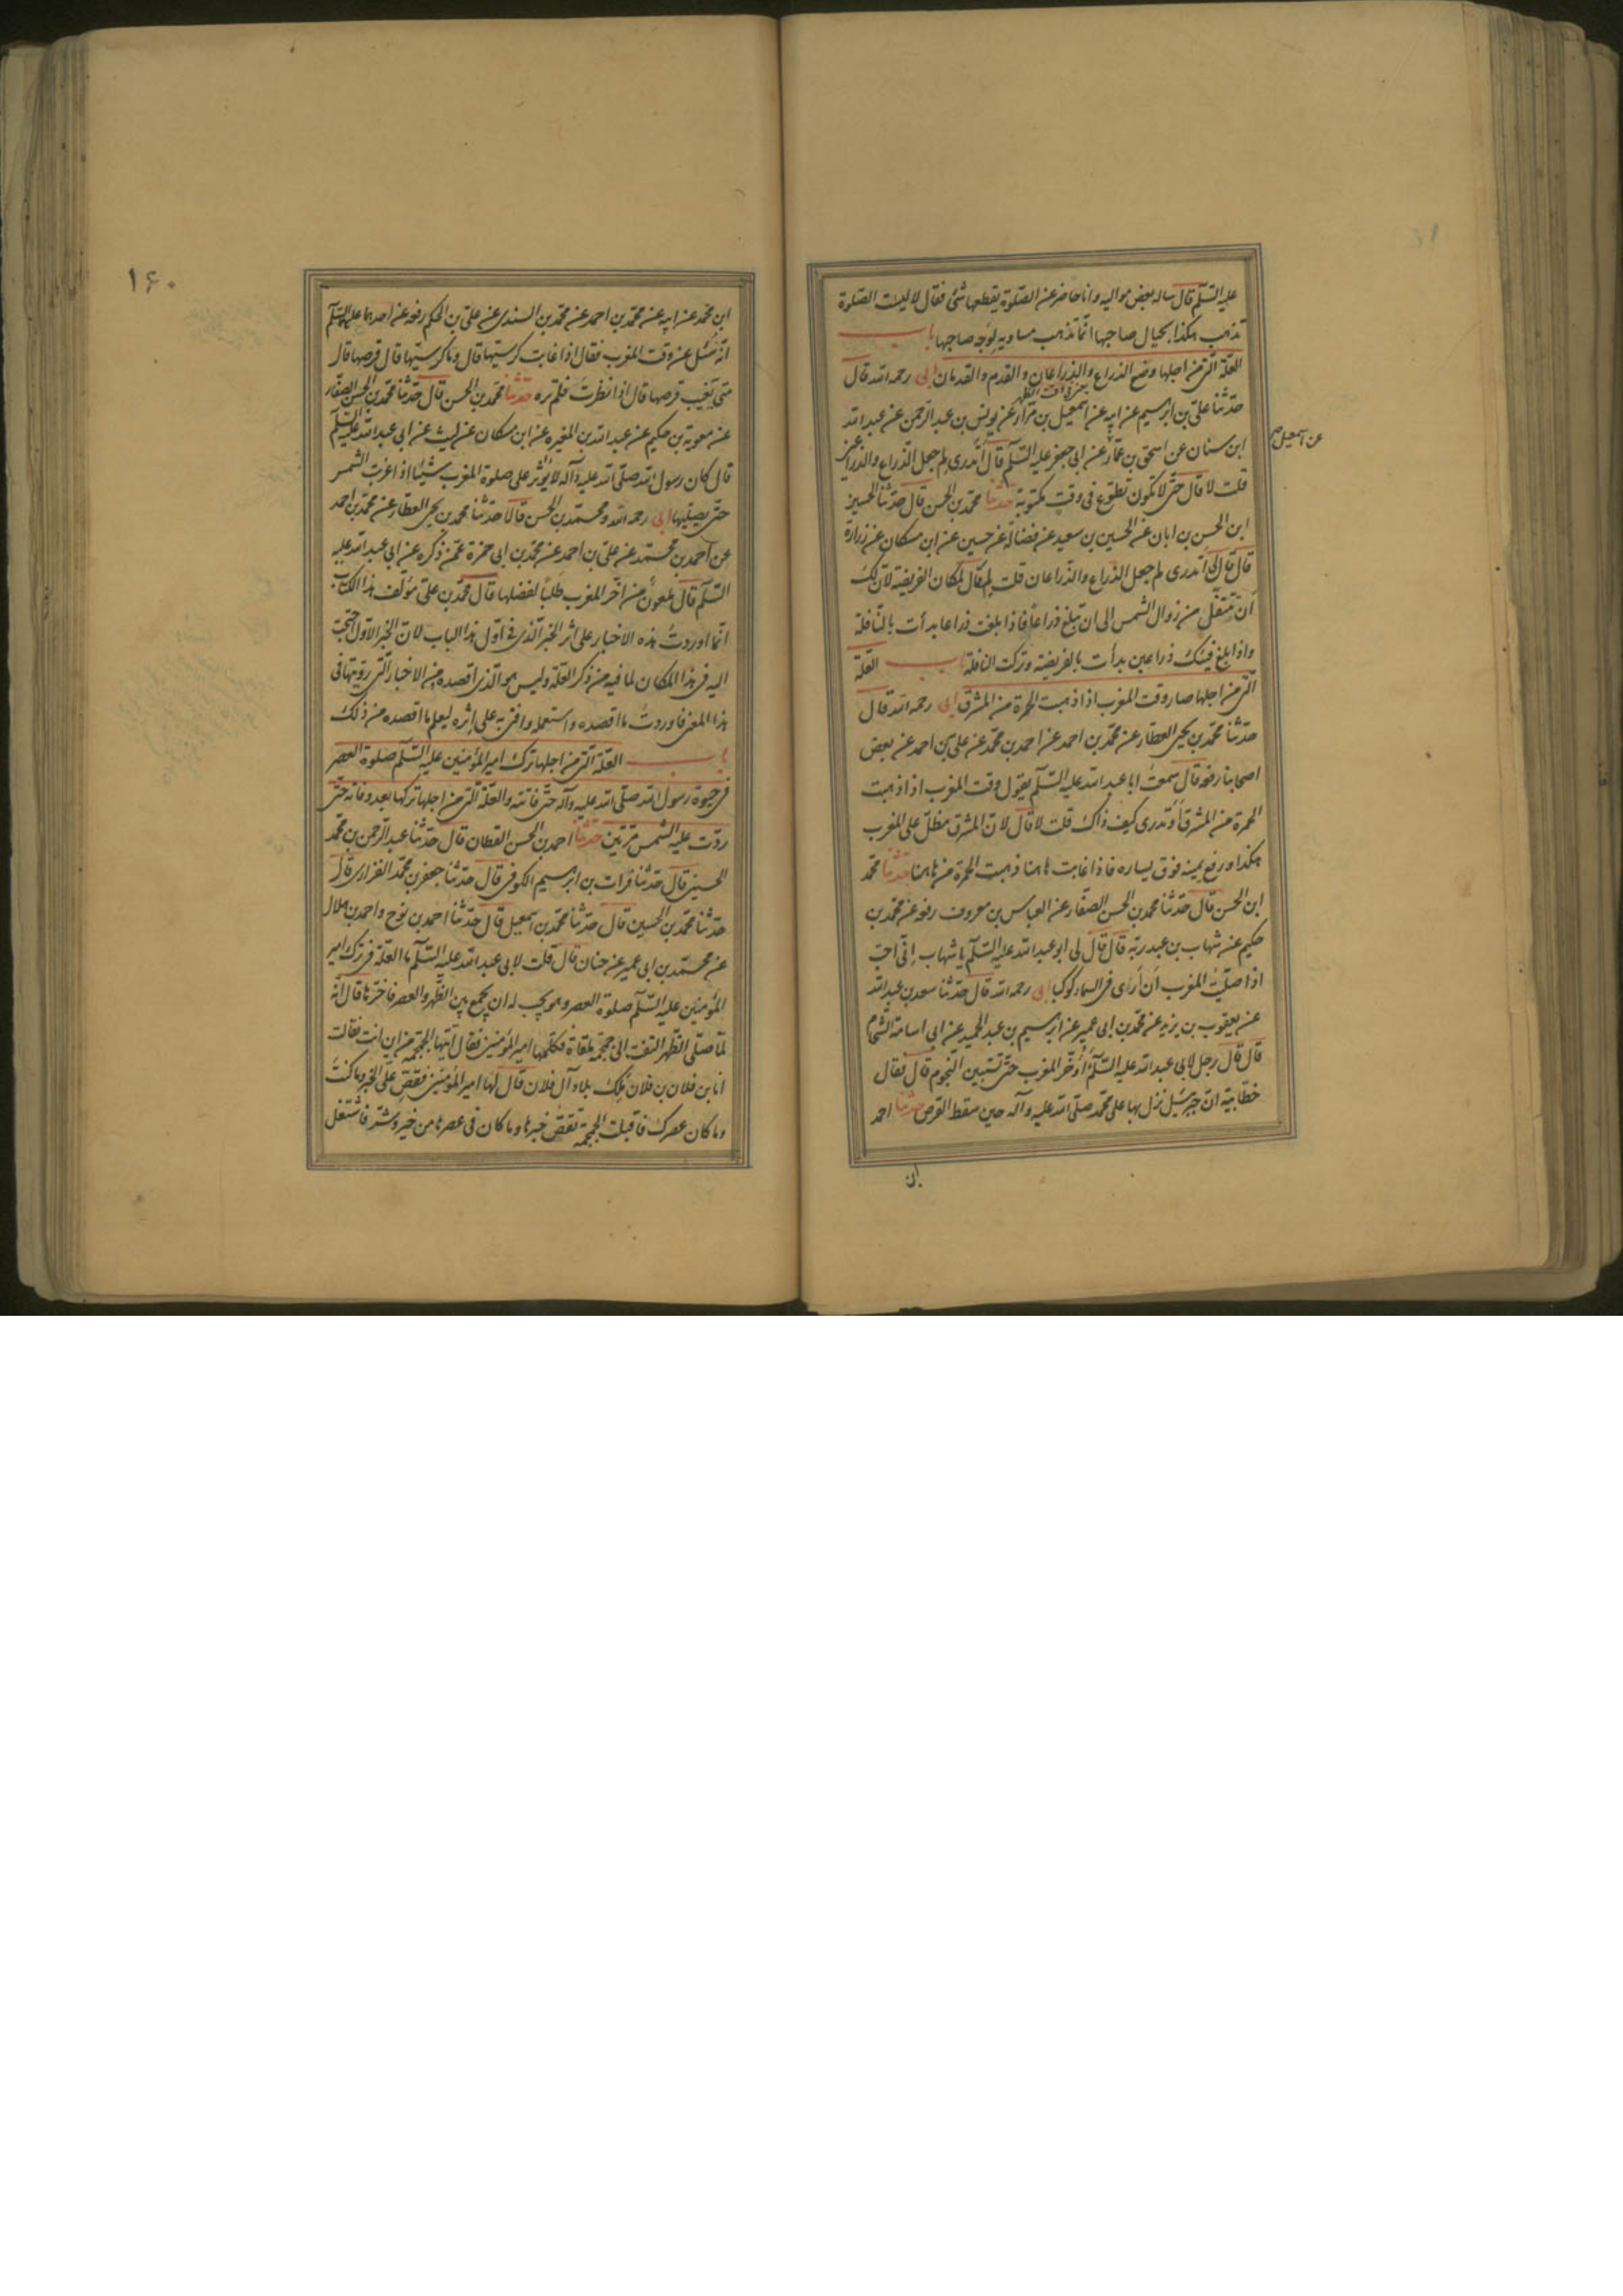 عليه السّلم قال ساله بعض مواليه وانا حاضر عن الصّلوة يقطعها شئ فقال لا ليست الصّلوة
تذهب هكذا بحيال صاحبها انّما تذهب مساوية لوجه صاحبها باب
العلّة الّتى من اجلها وضع الذراع والذراعان والقدم والقدمان ابى رحمه الله قال
حدّثنا علىّ بن ابرهيم عن ابيه عن اسمعيل بن مرّار عن يونس بن عبد الرّحمن عن عبد الله
عن اسمعيل
ابن سنان عن اسحق بن عمّار عن ابى جعفر عليه السّلم قال أتدرى لم جعل الذّراع والذراعين
قلت لا قال حتّى لا تكون تطوّع فى وقت مكتوبة حدثنا محمد بن الحسن قال حدّثنا الحسين
ابن الحسن بن ابان عن الحسين بن سعيد عن فضالة عن حسين عن ابن مسكان عن زرارة
قال قال لى أتدرى لم جعل الذراع والذّراعان قلت لم قال لمكان الفريضة لأن لك
أن تتنفّل من زوال الشمس الى ان تبلغ ذراعًا فاذا بلغت ذراعا بدأت بالنّافلة
واذا بلغ فيئك ذراعين بدأت بالفريضة وتركت النافلة باب العلّة
الّتى من اجلها صار وقت المغرب اذا ذهبت الحمرة من المشرق ابى رحمه الله قال
حدثنا محمّد بن يحيى العطار عن محمّد بن احمد عن احمد بن محمّد عن على بن احمد عن بعض
اصحابنا رفعه قال سمعت ابا عبد الله عليه السّلم يقول وقت المغرب اذا ذهبت
الحمرة من المشرق أوتدرى كيف ذاك قلت لا قال لانّ المشرق مطلّ على المغرب
هكذا ورفع يمينه فوق يساره فاذا غابت هاهنا ذهبت الحمرة من هاهنا حدثنا محمّد
ابن الحسن قال حدّثنا محمد بن الحسن الصفّار عن العباس بن معروف رفعه عن محمّد بن
حكيم عن شهاب بن عبد ربّه قال قال لى ابو عبد الله عليه السّلم يا شهاب إنّى احبّ
اذا صلّيت المغرب أن أرى فى السماء كوكبا ابى رحمه الله قال حدّثنا سعد بن عبد الله
عن يعقوب بن يزيد عن محمّد بن ابى عمير عن ابرهيم بن عبد الحميد عن ابى اسامة الشّحام
قال قال رجل لابى عبد الله عليه السّلم أؤخّر المغرب حتّى تستبين النجوم قال فقال
خطّابيّة انّ جبرئيل نزل بها على محمّد صلّى الله عليه وآله حين سقط القرص حدثنا احمد
ابن
١٦٠
ابن محمّد عن ابيه عن محمّد بن احمد عن محمّد بن السندى عن علىّ بن الحكم رفعه عن احدهما عليهما السّلم
انّه سئل عن وقت المغرب فقال اذا غابت كرسيّها قال وما كرسيّها قال قرصها قال
متى تغيب قرصها قال اذا نظرت فلم تره حدثنا محمّد بن الحسن قال حدّثنا محمّد بن الحسن الصفّار
عن معوية بن حكيم عن عبد الله بن المغيرة عن ابن مسكان عن ليث عن ابى عبد الله عليه السّلم
قال كان رسول الله صلّى الله عليه وآله لا يؤثر على صلوة المغرب شيئا اذا غربت الشمس
حتى يصلّيها ابى رحمه الله ومحمّد بن الحسن قالا حدّثنا محمّد بن يحيى العطّار عن محمّد بن احمد
عن احمد بن محمّد عن علىّ بن احمد عن محمّد بن ابى حمزة عمّن ذكره عن ابى عبد الله عليه
السّلم قال ملعونٌ من اخّر المغرب طلبًا لفضلها قال محمّد بن على مؤلّف هذا الكتاب
انّما اوردت هذه الاخبار على اثر الخبر الّذى فى اوّل هذا الباب لانّ الخبر الاوّل احتجت
اليه فى هذا المكان لما فيه من ذكر العلّة وليس هو الّذى اقصده من الاخبار الّتى رويتها فى
هذا المعنى فاوردت ما اقصده واستعمله وافتى به على إثره ليعلم ما اقصده من ذلك
باب العلّة الّتى من اجلها ترك امير المؤمنين عليه السّلم صلوة العصر
فى حيوة رسول الله صلّى الله عليه وآله حتّى فاتته والعلّة الّتى من اجلها تركها بعد وفاته حتّى
ردّت عليه الشمس مرّتين حدثنا احمد بن الحسن القطان قال حدّثنا عبد الرّحمن بن محمّد
الحسينى قال حدّثنا فرات بن ابرهيم الكوفى قال حدّثنا جعفر بن محمّد الفزارى قال
حدّثنا محمّد بن الحسين قال حدّثنا محمّد بن اسمعيل قال حدّثنا احمد بن نوح واحمد بن هلال
عن محمّد بن ابى عمير عن حنان قال قلت لابى عبد الله عليه السّلم ما العلّة فى ترك امير
المؤمنين عليه السّلم صلوة العصر وهو يحبّ له ان يجمع بين الظّهر والعصر فاخّرها قال انّه
لمّا صلّى الظّهر التفت الى جمجمة ملقاة فكلّمها امير المؤمنين فقال ايّتها الجمجمة من اين انت فقالت
انا بن فلان بن فلان ملك بلاد آل فلان قال لها امير المؤمنين فقصّى علىّ الخبر وما كنت
وما كان عصرك فاقبلت الجمجمة تقصّ خبرها وما كان فى عصرها من خير وشرّ فاشتغل